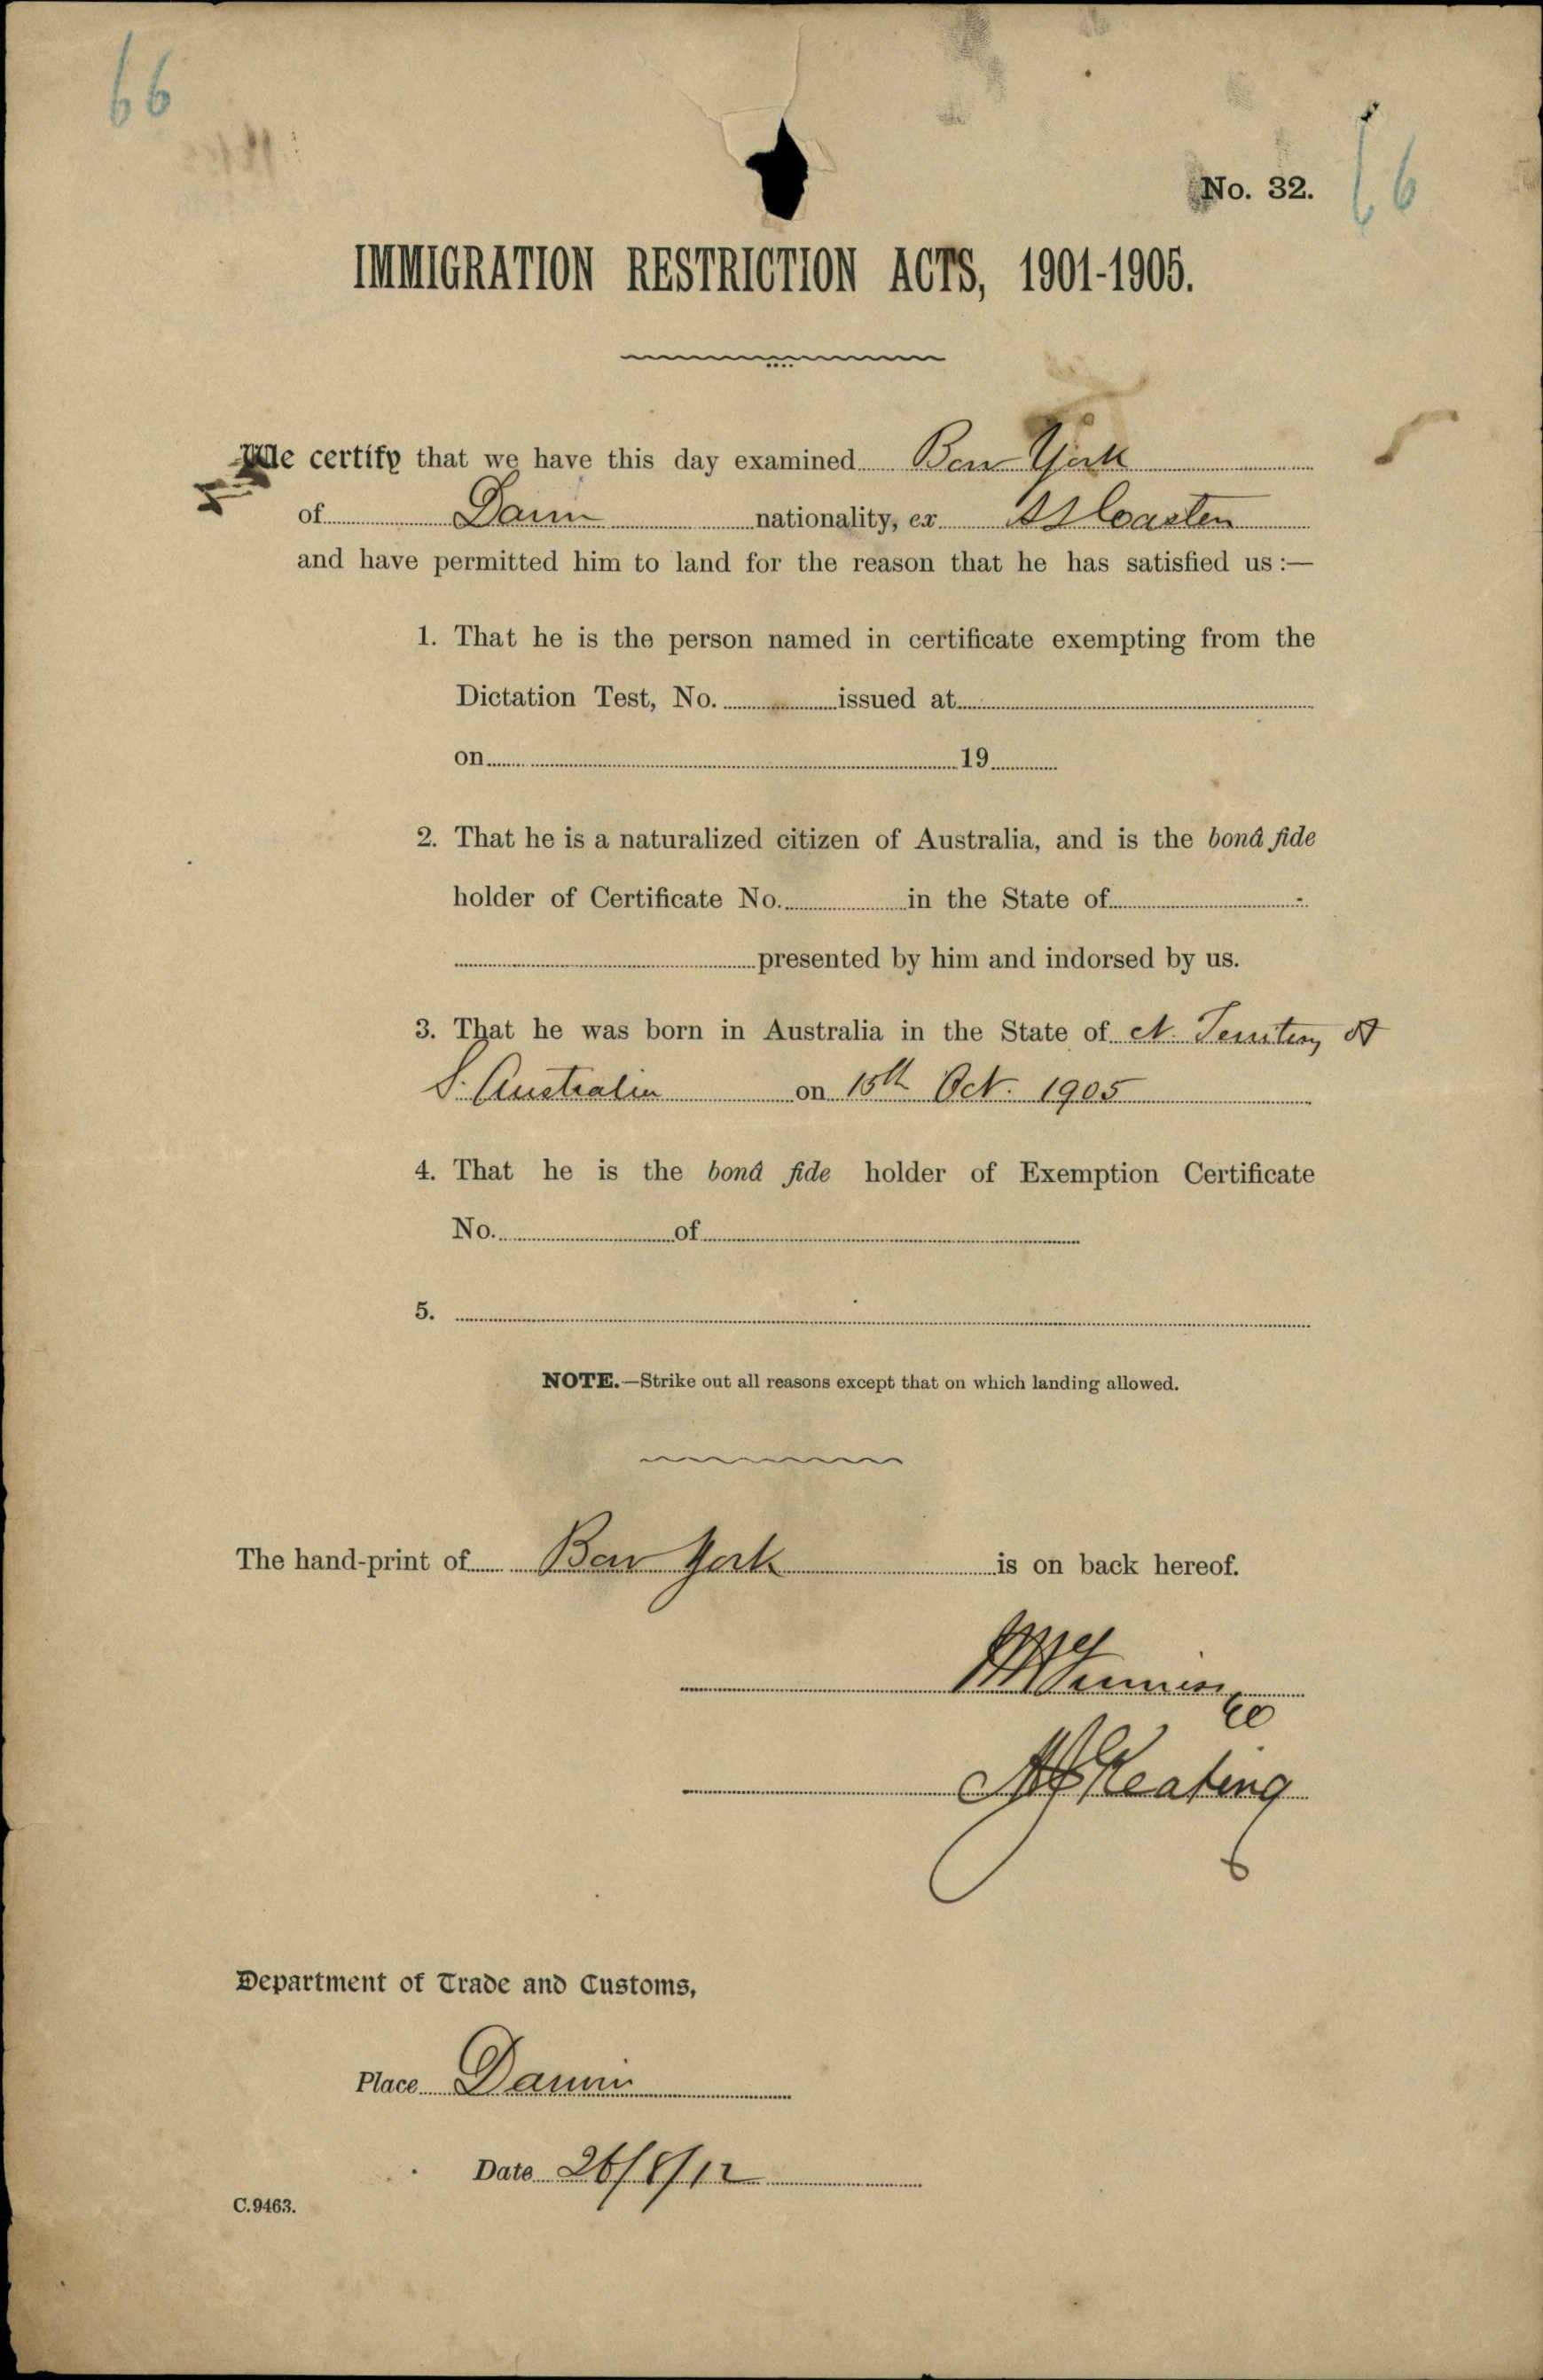 66
No. 32.
66
IMMIGRATION RESTRICTION ACTS, 1901-1905.
We certify that we have this day examined Bow York
of Darwin nationality, ex SS Coasten
and have permitted him to land for the reason that he has satisfied us:—
1. That he is the person named in certificate exempting from the
Dictation Test, No. issued at
on 19
2. That he is a naturalized citizen of Australia, and is the bonâ fide
holder of Certificate No. in the State of
presented by him and indorsed by us.
3. That he was born in Australia in the State of N. Territory of
S. Australia on 15th Oct. 1905
4. That he is the bonâ fide holder of Exemption Certificate
No. of
5.
NOTE.—Strike out all reasons except that on which landing allowed.
The hand-print of Bow York is on back hereof.
Keating
Department of Trade and Customs,
Place Darwin
Date 26/8/12
C.9463.